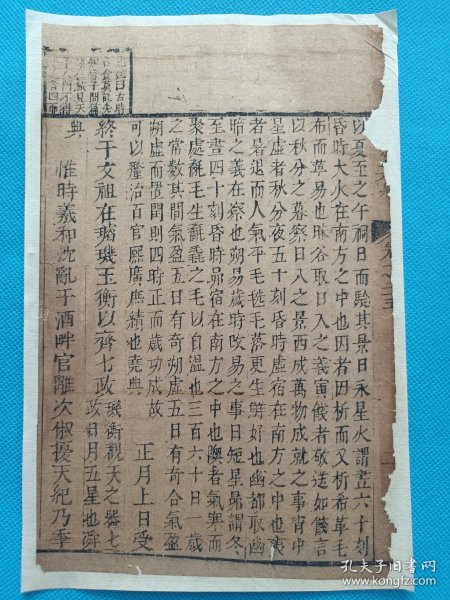 以夏至之午祠日而驗其景日永星火謂晝六十刻
昏時大火在南方之中也因者因析而又析希革毛
布而革易也昧谷取日入之義寅餞者敬送如餞言
以秋分之暮察日入之景西成萬物成就之事宵中
星虛者秋分夜五十刻昏時虛宿在南方之中也夷
者暑退而人氣平毛毨毛落更生鮮好也幽都取幽
暗之義在察也朔易歲時改易之事日短星昴謂冬
至晝四十刻昏時昴宿在南方之中也隩者氣寒而
聚處氄毛生氄毳之毛以自溫也三百六十日一歲
之常數其間氣盈五日有奇朔虛五日有奇合氣盈
朔虛而置閏則四時正而歲功成故
可以釐治百官熙廣庶績也堯典
正月上日受
終于文祖在璿璣玉衡以齊七政
璣衡觀天之器七
政日月五星也舜
典
惟時羲和沈亂于酒畔官離次俶擾天紀乃季
孔夫子旧书网